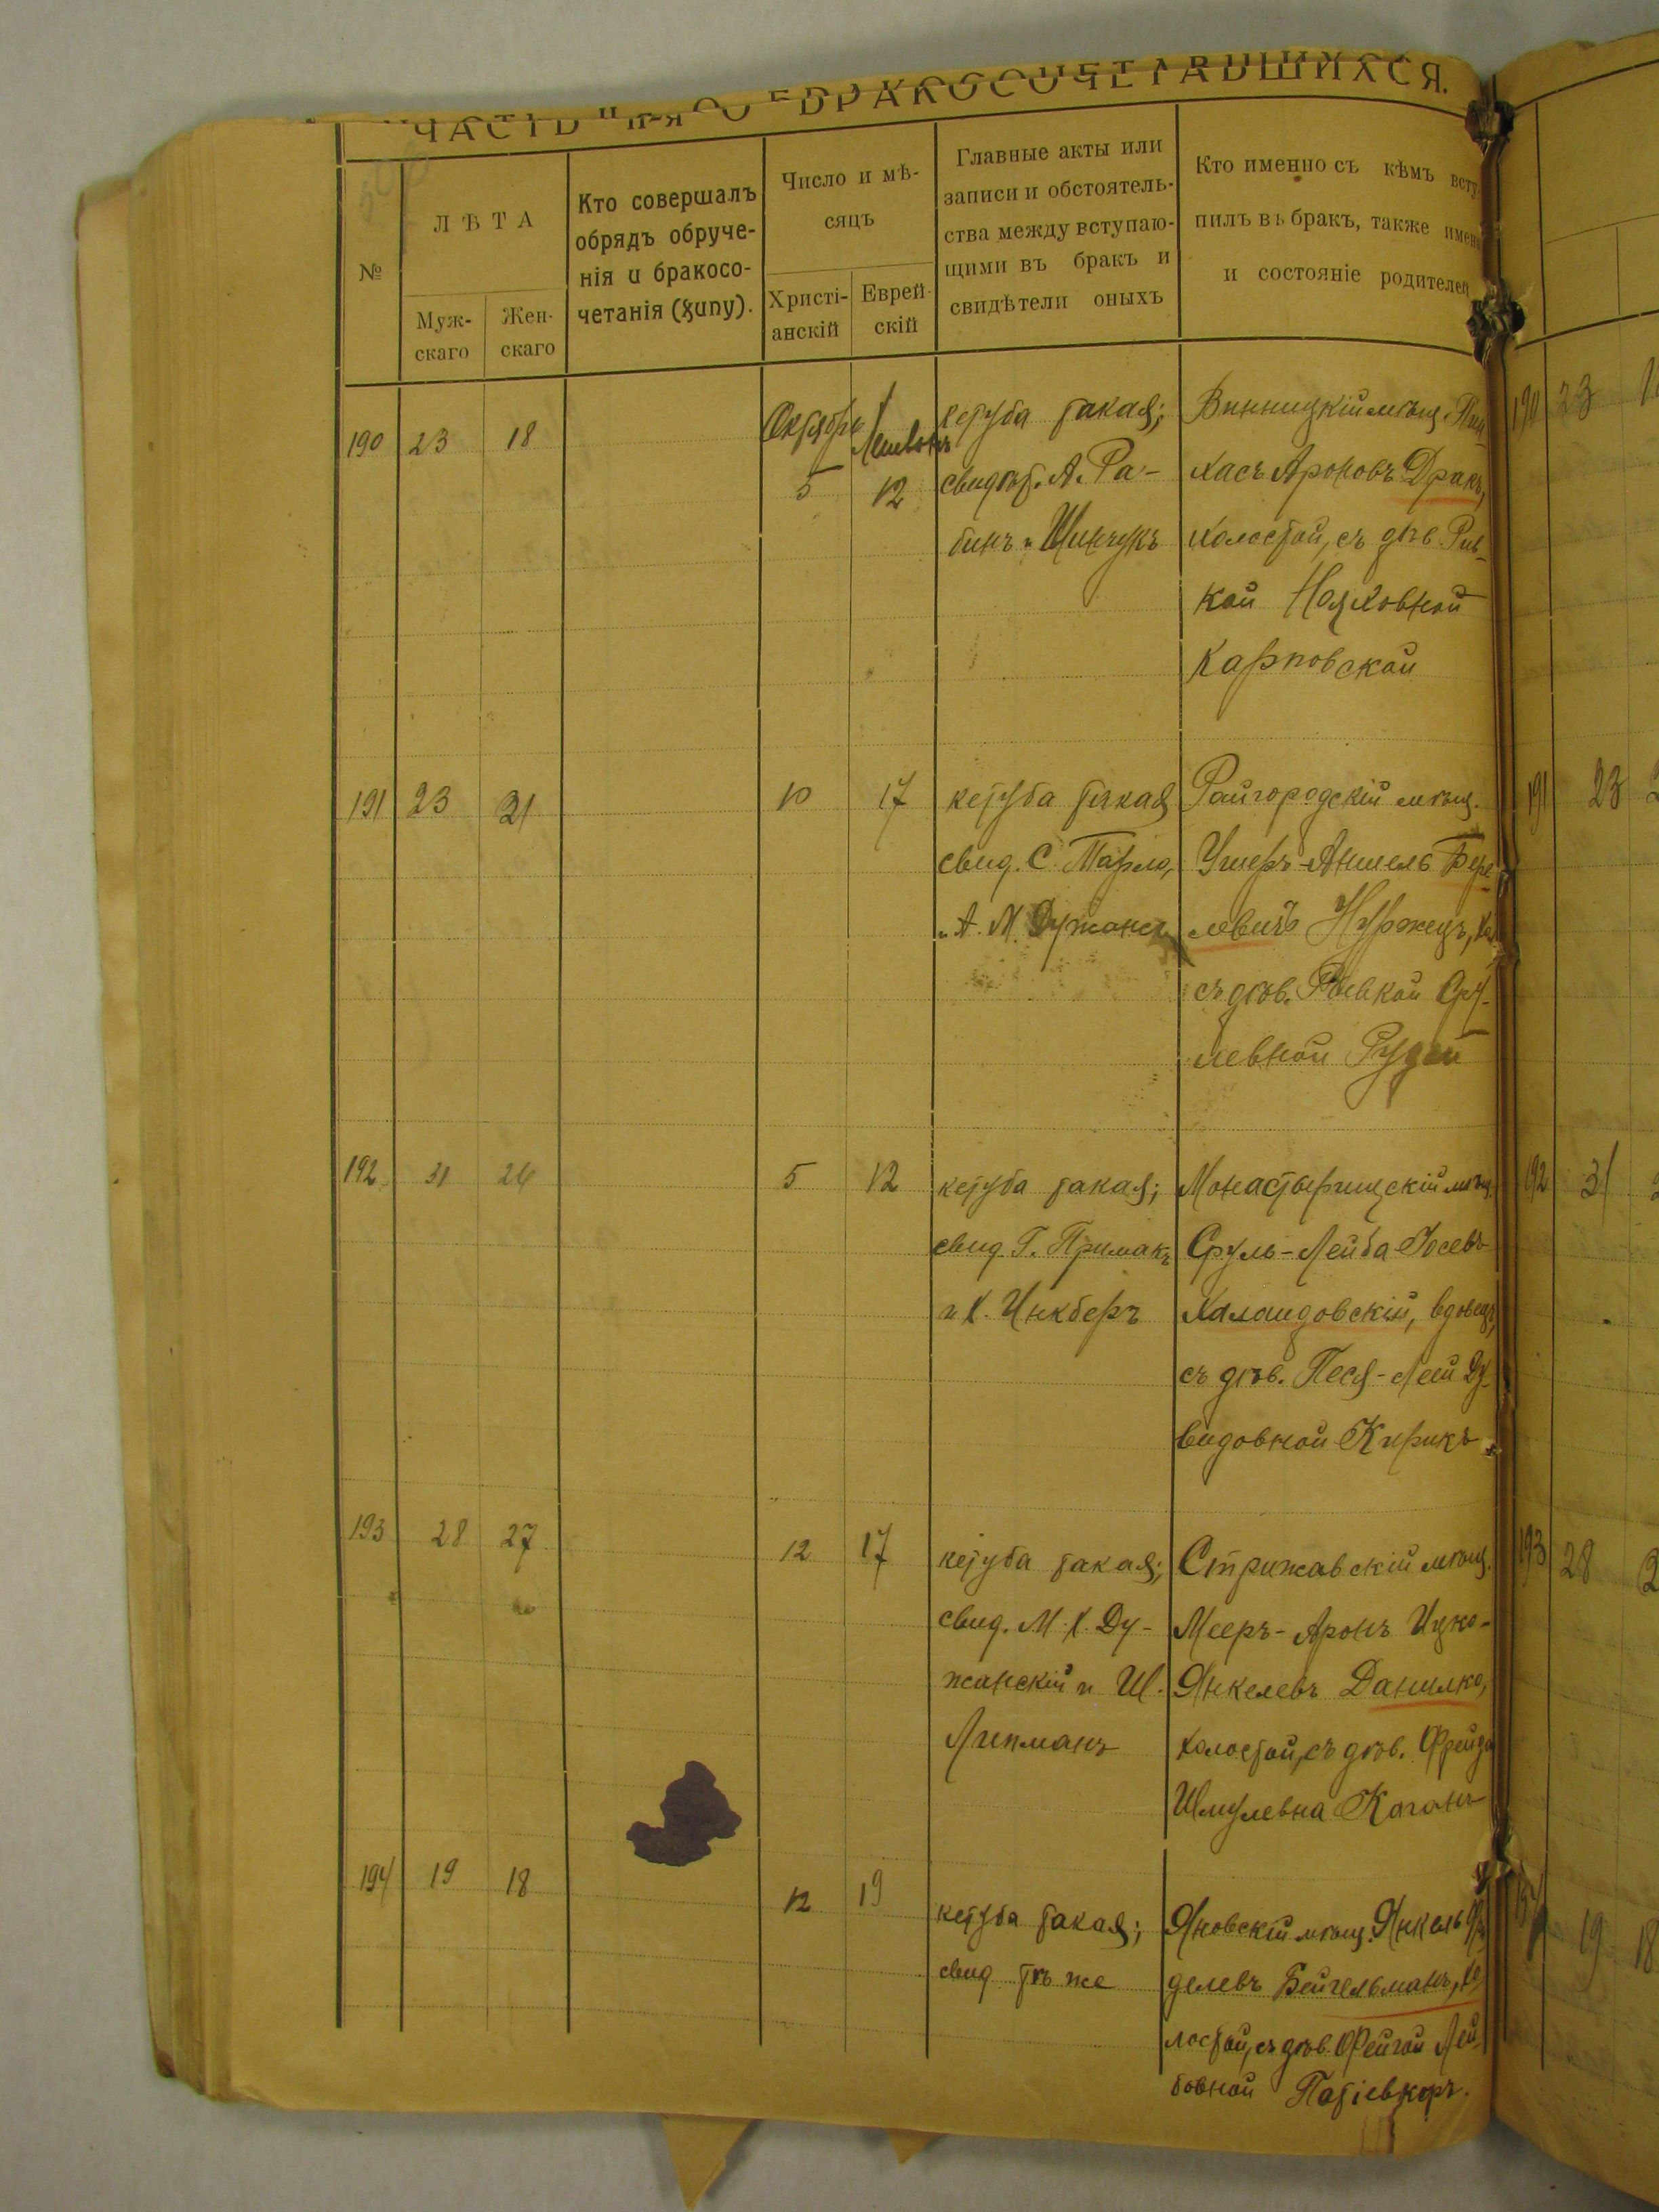 ЧАСТЬ II-я О БРАКОСОЧЕТАВШИХСЯ.
№
ЛѢТА
Муж-
скаго
Жен-
скаго
Кто совершалъ
обрядъ обруче-
нія и бракосо-
четанія (хупу).
Число и мѣ-
сяцъ
Христі-
анскій
Еврей-
скій
Главные акты или
записи и обстоятель-
ства между вступаю-
щими въ бракъ и
свидѣтели оныхъ
Кто именно съ кѣмъ всту-
пилъ въ бракъ, также имена
и состояніе родителей
190 23 18
Октябрь
5
12
кетуба такая;
свидѣт. А. Ра-
бинъ и Шинчукъ
Винницкій мѣщ. Пин
хасъ Ароновъ Дракъ,
холостой, съ дѣв. Рив-
кой Нояховной
Карповской
191 23 21
10 17
кетуба такая
свид. С. Тарло,
и А. М. Дужанск
Райгородскій мѣщ.
Ушеръ-Аншель Бере-
левичъ Нуржецъ, хол
съ дѣв. Ривкой Сру-
левной Рудой
192 31 26
5 12
кетуба такая;
свид Г. Примакъ
и Х. Инкберъ
Монастырищскій мѣщ.
Сруль-Лейба Іосевъ
Халаидовскій, вдовецъ,
съ дѣв. Песя-Леей Ду-
видовной Кирикъ
193 28 27
12 17
кетуба такая;
свид. М. Х. Ду-
жанскій и Ш.
Липманъ
Стрижавскій мѣщ.
Мееръ-Аронъ Ицко-
Янкелевъ Данилко,
холостой, съ дѣв. Фрейда
Шмулевна Каганъ
194 19 18
12 19
кетуба такая;
свид тѣ же
Яновскій мѣщ. Янкель
делевъ Бейгельманъ, хо
лостой, съ дѣв. Фейгой Лей
бовной
190 23
191 23
192 31
193 28
19 18